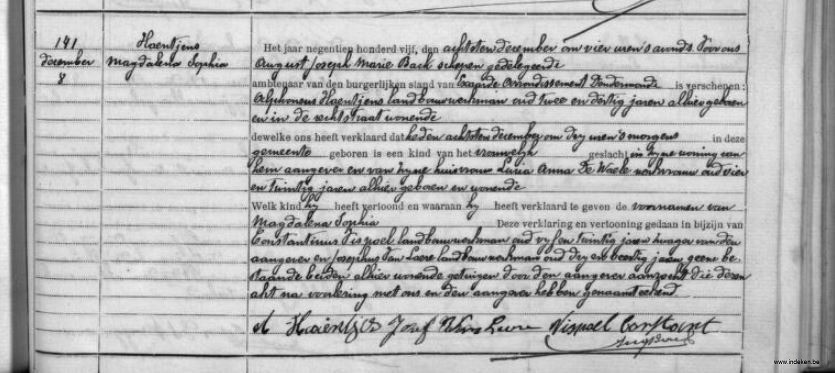 141
december
8
Haentjens
Magdalena Sophia
Het jaar negentien honderd vijf, den achtsten december om vier uren 's avonds Voor ons
August Joseph Marie Back schepen gedelegeerde
ambtenaar van den burgerlijken stand van Exaarde Arrondissement Dendermonde is verschenen:
Alphonsus Haentjens landbouwwerkman oud twee en dertig jaren alhier geboren
en in de rechtstraat wonende
dewelke ons heeft verklaard dat heden achtsten december om dry uren 's morgens in deze
gemeente geboren is een kind van het vrouwelyk geslacht in zyne woning van
hem aangever en van zyne huisvrouw Lucia Anna De Waele werkvrouw oud vier
en twintig jaren alhier geboren en wonende
Welk kind hy heeft vertoond en waaraan hy heeft verklaard te geven de voornamen van
Magdalena Sophia Deze verklaring en vertooning gedaan in bijzijn van
Constantinus Vispoel landbouwwerkman oud vyf en twintig jaren zwager van den
aangever en Josephus Van Laere landbouwwerkman oud dry en veertig jaren geene be
staande beiden alhier wonende getuigen door den aangever aanzocht die deze
akt na voorlezing met ons en den aangever hebben genaamteekend
A Haentjens Josef Van Laere Vispoel Constant
www.indeken.be